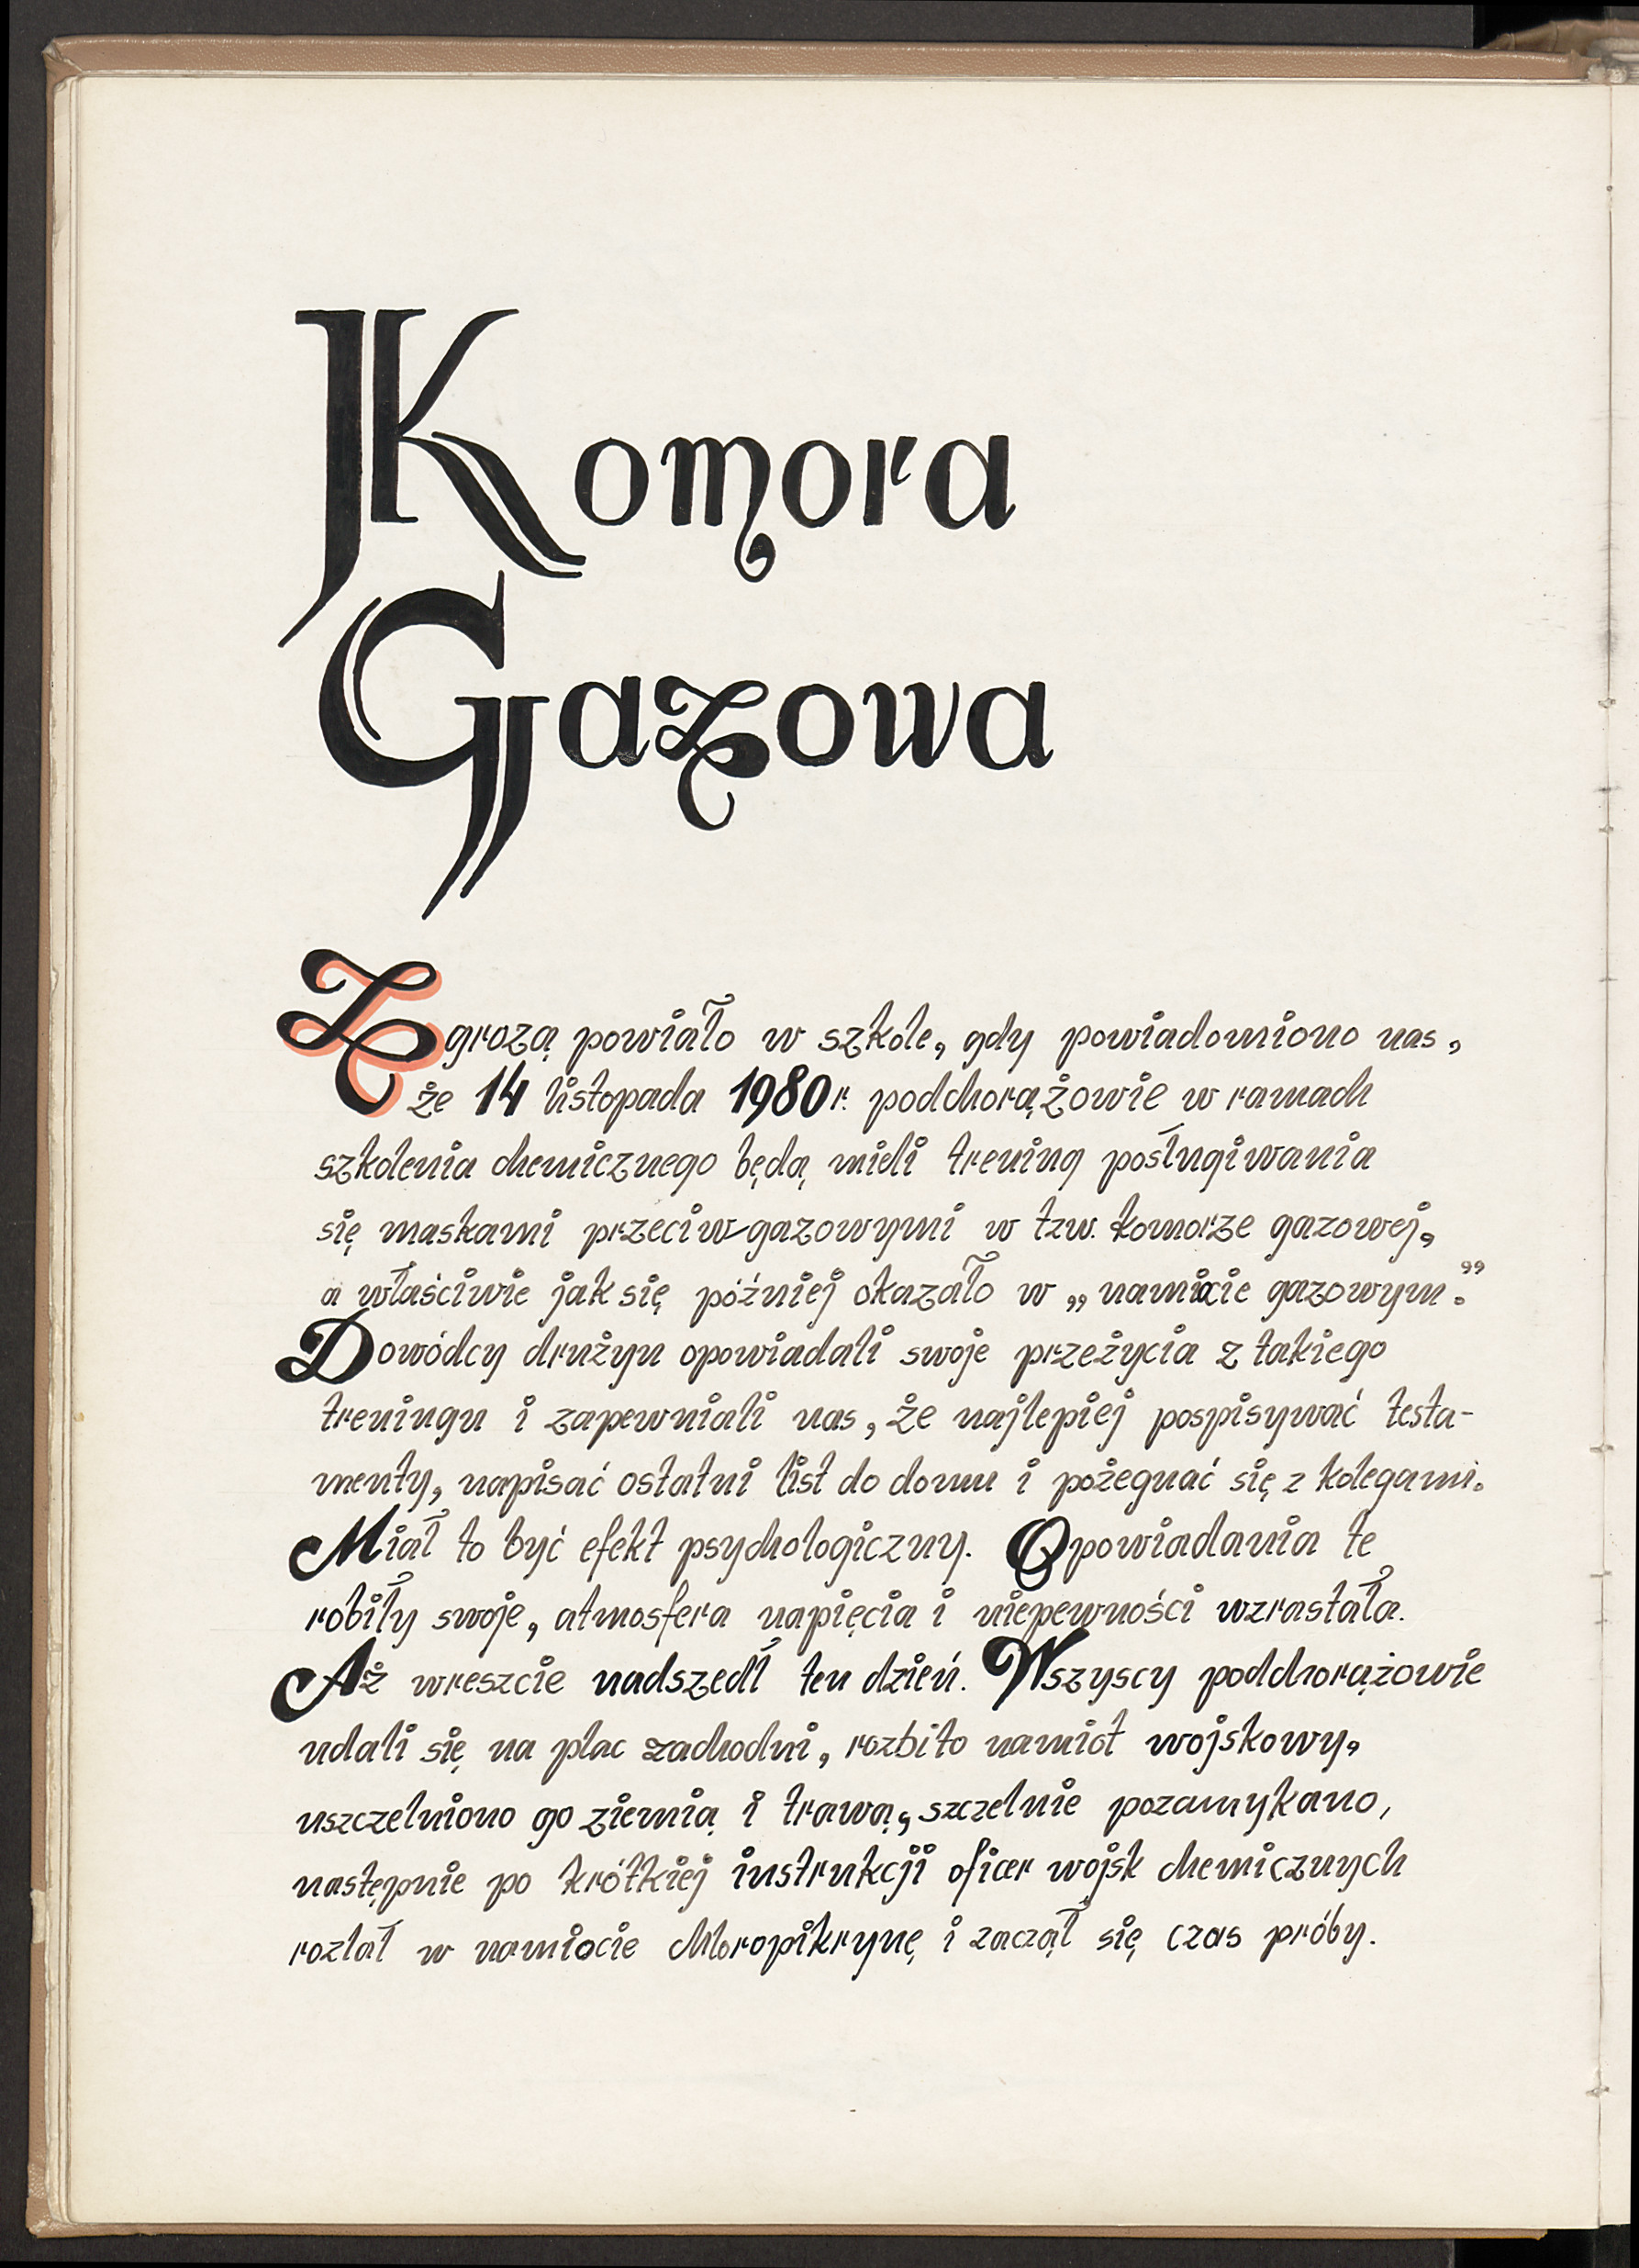 Komora
Gazowa
Zgrozą powiało w szkole, gdy powiadomiono nas,
że 14 listopada 1980 r. podchorążowie w ramach
szkolenia chemicznego będą mieli trening posługiwania
się maskami przeciw-gazowymi w tzw. komorze gazowej,
a właściwie jak się później okazało w „namiocie gazowym."
Dowódcy drużyn opowiadali swoje przeżycia z takiego
treningu i zapewniali nas, że najlepiej pospisywać testa-
menty, napisać ostatni list do domu i pożegnać się z kolegami.
Miał to być efekt psychologiczny. Opowiadania te
robiły swoje, atmosfera napięcia i niepewności wzrastała.
Aż wreszcie nadszedł ten dzień. Wszyscy podchorążowie
udali się na plac zachodni, rozbito namiot wojskowy,
uszczelniono go ziemią i trawą, szczelnie pozamykano,
następnie po krótkiej instrukcji oficer wojsk chemicznych
rozlał w namiocie chloropikrynę i zaczął się czas próby.